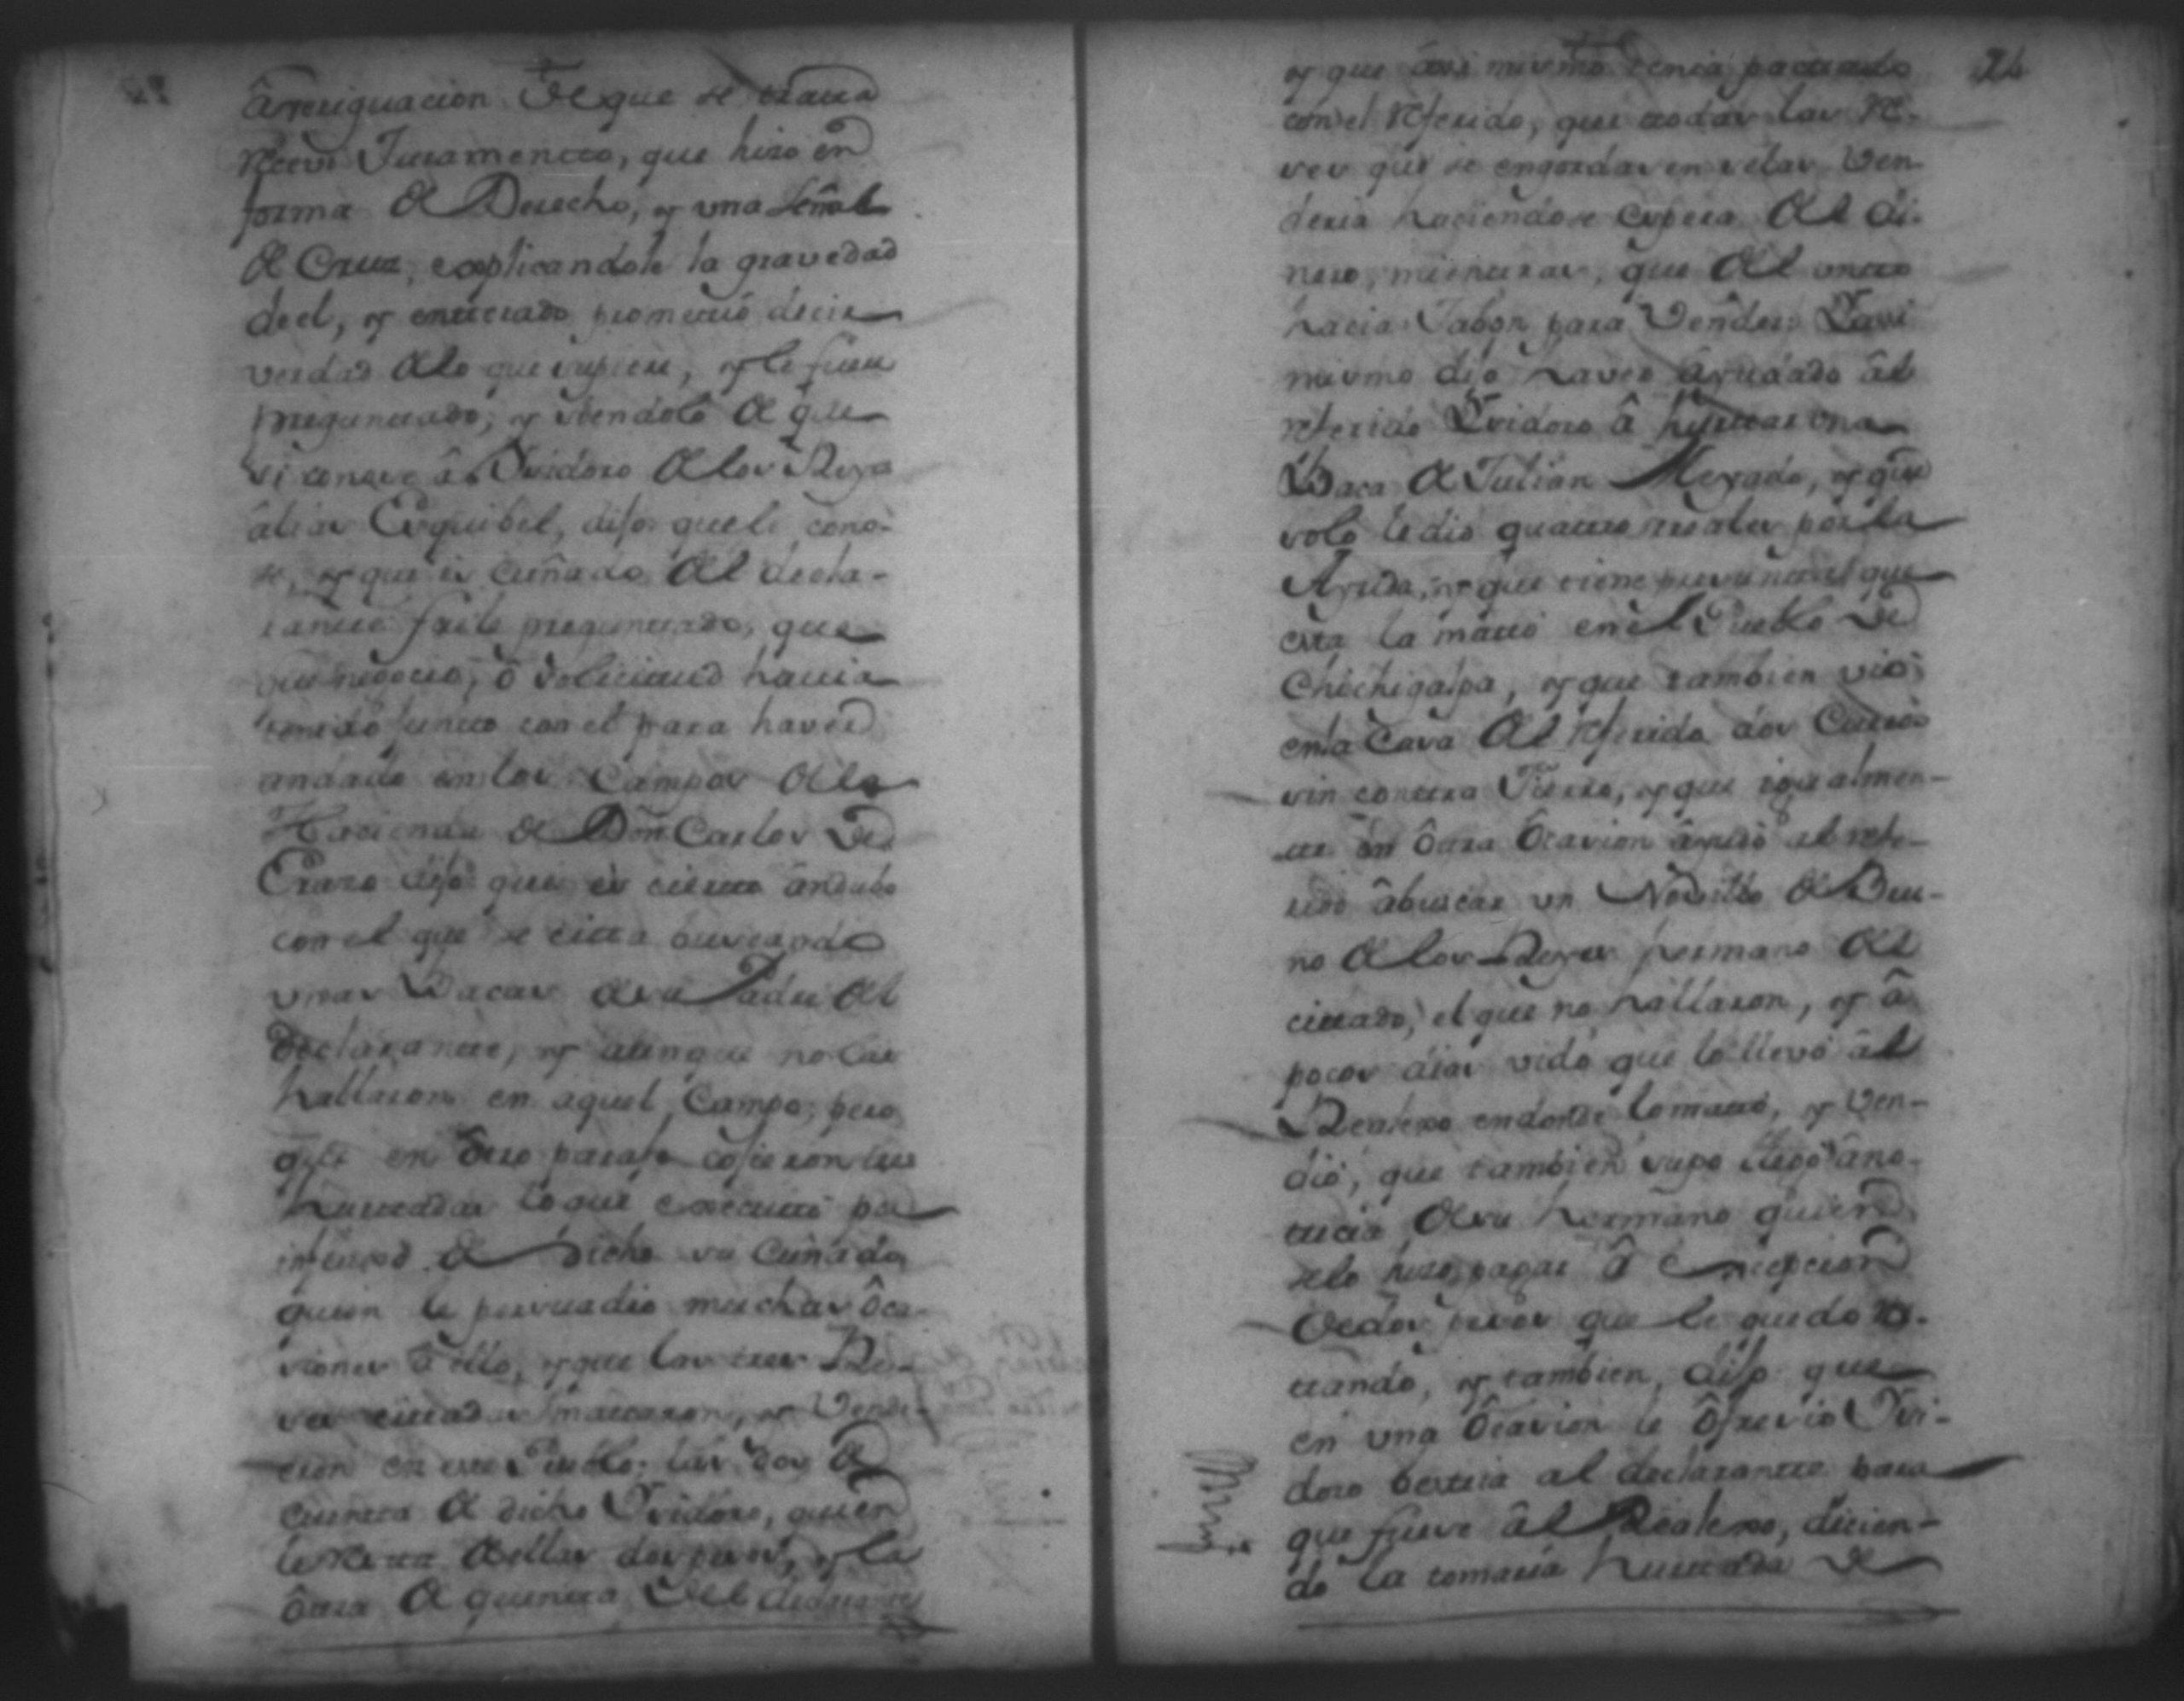 âveriguacion de que se tratta
Recivi Juramentto, que hizo en
forma de Derecho, y una señal
de Cruz, explicandole la gravedad
de el, y entterado promettió decir
verdad de lo que supiere, y le fuere
preguntado; y siendolo de que
si conoce â Ysidoro de los Reyes
âlias Esquibel, dijo que le cono-
se, y que es cuñado del decla-
rantte fuele preguntado, que
que negocio, ô solicitud havia
tenido juntto con el para haver
andado en los Campos de la
Hacienda de Don Carlos de
Erazo dijo que es ciertto ândubo
con el que se citta buscando
unas Bacas de su Padre del
declarantte, y aunque no las
hallaron en aquel Campo; pero
que en ôtro paraje cojieron tres
hurttadas lo que executtó por
influxo de dicho su Cuñado
quien le persuadio muchas ôca-
siones â ello, y que las tres Re-
ses cittadas mattaron, y vendi-
eron en este Pueblo: las dos de
cuentta de dicho Ysidoro, quien
le de ellas dos pesos, y la
ôtra de quentta del declarantte
26
y que assi mismo tenia pacttado
con el Referido, que ttodas las Re-
ses que se engordasen se las ven-
deria haciendose espera del di-
nero, mienttras, que del untto
hacia Jabon para vender: Y assi
mismo dijo haver âyudado âl
referido Ysidoro â hurttar una
Baca de Julian Meyado, y que
solo le dió quattro reales por la
Ayuda, y que tiene presentte que
esta la mattó en el Pueblo de
Chichigalpa, y que tambien vió
en la Casa del referido dos Cueros
sin conttra Fierro, y que igualmen-
tte en ôtra ôcasion âyudó al refe-
rido âbuscar un Novillo de Bru-
no de los Reyes hermano del
cittado, el que no hallaron, y â
pocos dias vido que lo llevó âl
Realexo en donde lo mattó, y ven-
dió, que tambien supo llegó âno-
tticia de su hermano quien
se lo hizo pagar â Excepcion
de dos pesos que le quedo res-
ttando, y tambien, dijo que
en una ôcasion le ôfrecio Ysi-
doro besttia al declarantte para
que fuese âl Realexo, dicien-
do la tomaria hurttada de